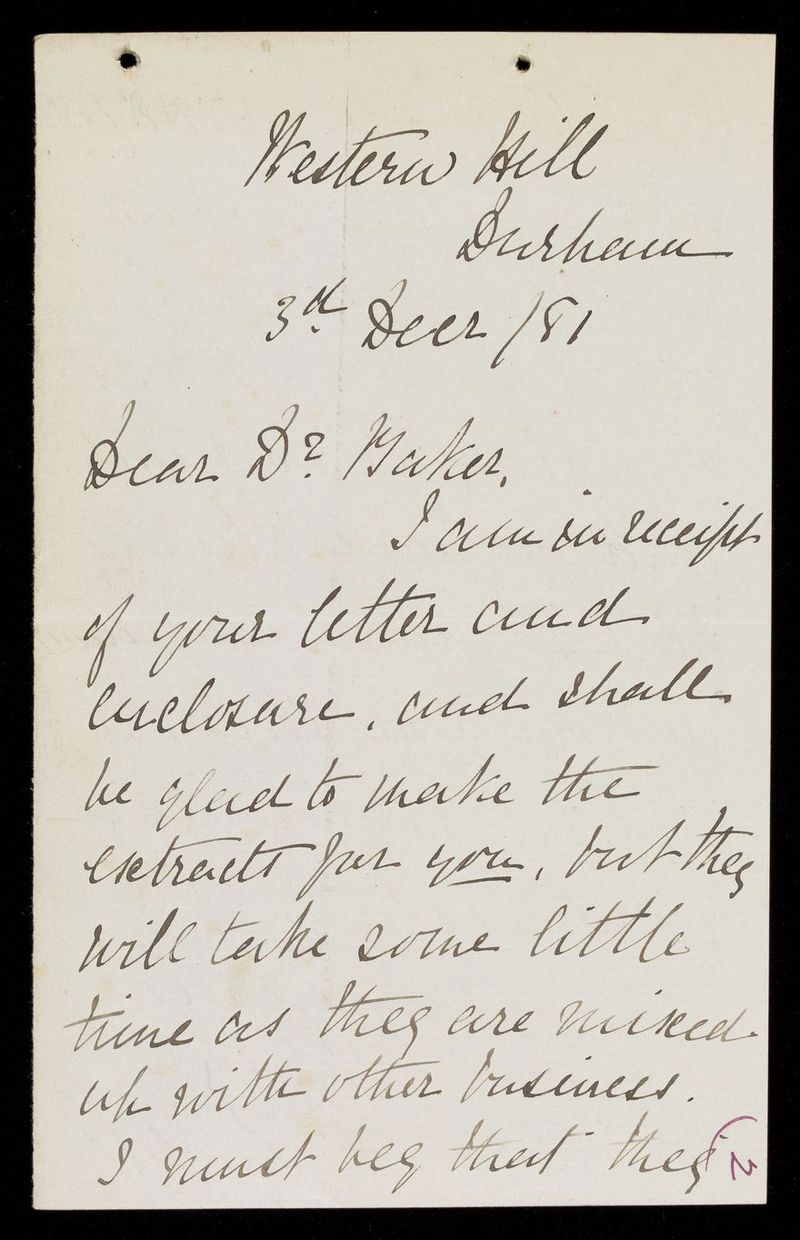 Western Hill
Durham
3d. Decr /81
Dear Dr. Baker,
I am in receipt
of your letter and
enclosure, and shall
be glad to make the
extracts for you, but they
will take some little
time as they are mixed
up with other business.
I must beg that they
2